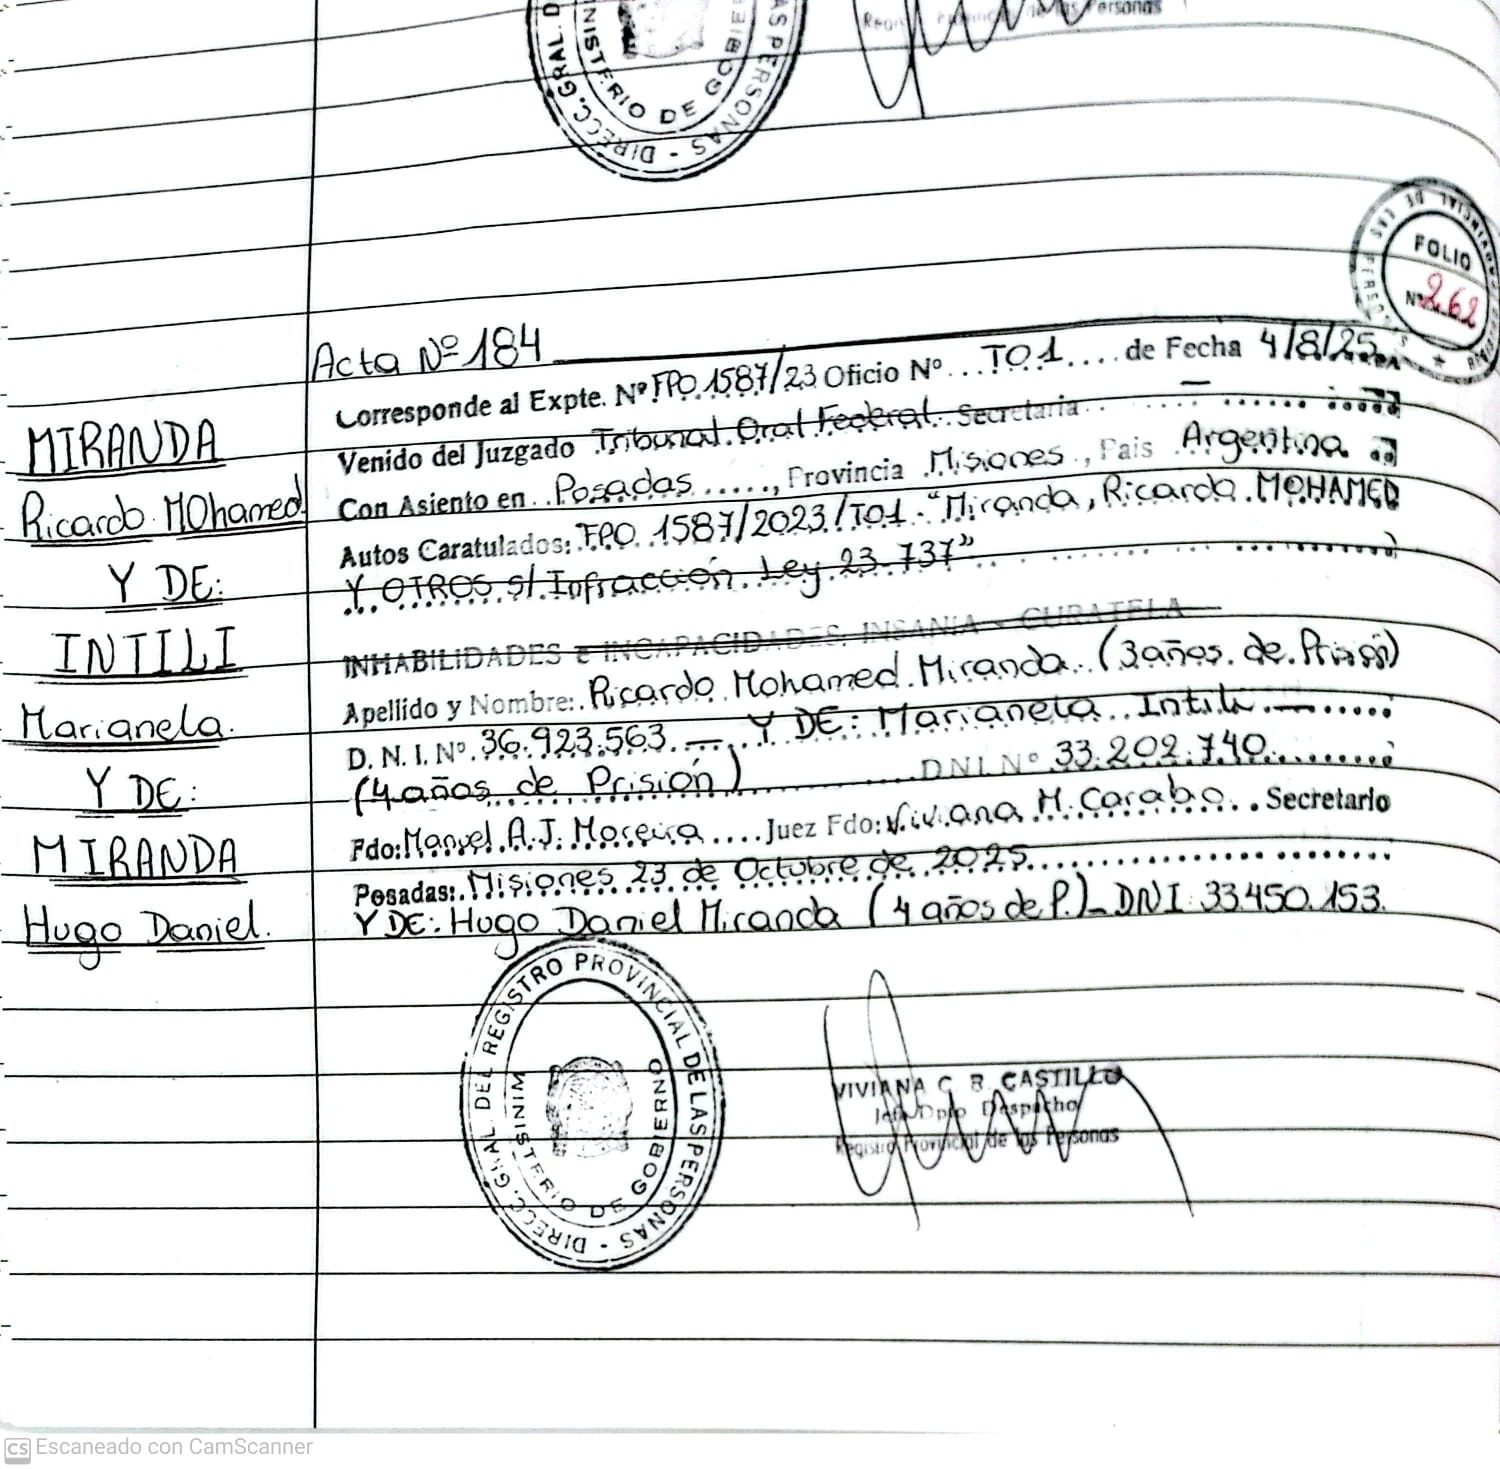 DIRECC. GRAL. D
AS PERSONAS
MINISTERIO DE GOBIE
de las Personas
FOLIO
Nº 262
Acta Nº 184
Corresponde al Expte. Nº FPO 1587/23 Oficio Nº ... TO1 .... de Fecha 4/8/25
Venido del Juzgado Tribunal Oral Federal. Secretaria .. —
Con Asiento en .. Posadas ......, Provincia Misiones, Pais Argentina
Autos Caratulados: FPO 1587/2023/TO1 - "Miranda, Ricardo MOHAMED
Y OTROS s/ Infracción Ley 23.737"
INHABILIDADES e INCAPACIDADES. INSANIA - CURATELA
Apellido y Nombre: Ricardo Mohamed Miranda (3 años de Prisión)
D. N. I. Nº 36.923.563. — Y DE: Marianela Intili —
(4 años de Prisión) DNI Nº 33.202.740
Fdo: Manuel A.J. Moreira .... Juez Fdo: Viviana M. Carabo .. Secretario
Posadas: Misiones 23 de Octubre de 2025
Y DE: Hugo Daniel Miranda (4 años de P.) - DNI 33.450.153.
MIRANDA
Ricardo MOhamed
Y DE:
INTILI
Marianela.
Y DE:
MIRANDA
Hugo Daniel.
DIRECC. GRAL. DEL REGISTRO PROVINCIAL DE LAS PERSONAS -
MINISTERIO DE GOBIERNO
VIVIANA C. B. CASTILLO
Jefa Dpto Despacho
Registro Provincial de las Personas
CS Escaneado con CamScanner